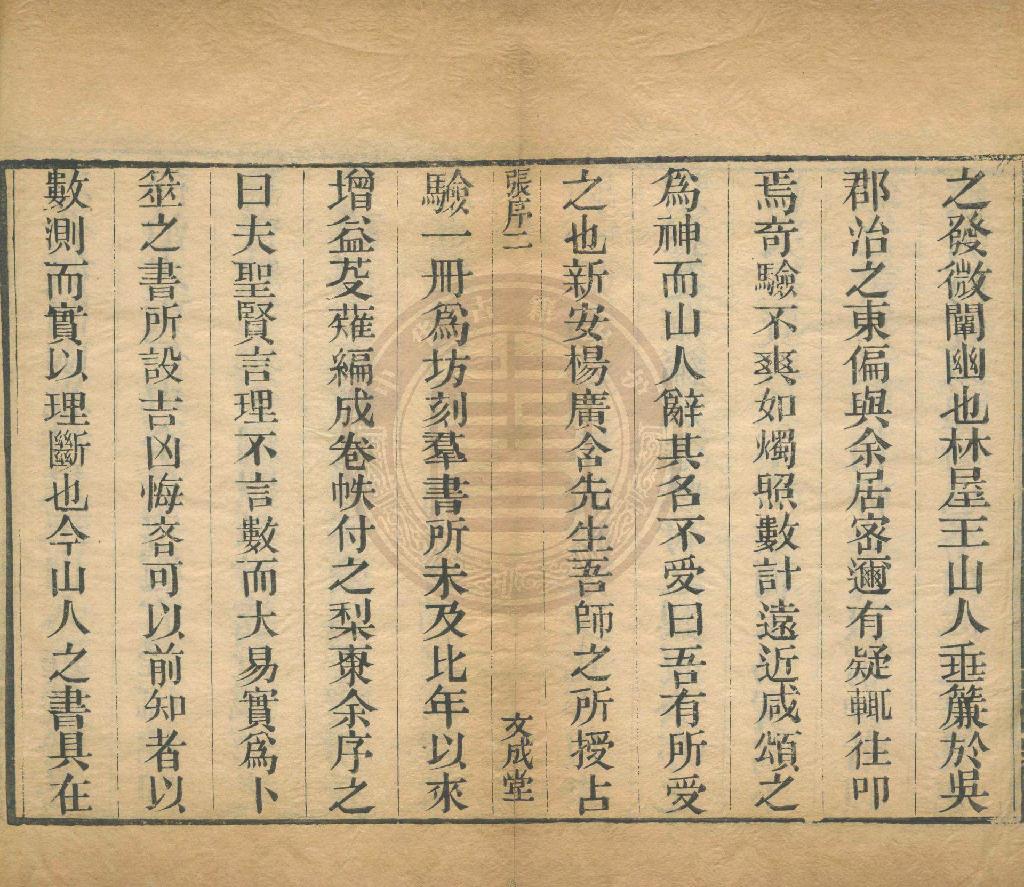 之發微闡幽也林屋王山人垂簾於吳
郡治之東偏與余居密邇有疑輒往叩
焉奇驗不爽如燭照數計遠近咸頌之
為神而山人辭其名不受曰吾有所受
之也新安楊廣含先生吾師之所授占
張序二
文成堂
驗一冊為坊刻羣書所未及比年以來
增益芟薙編成卷帙付之梨棗余序之
曰夫聖賢言理不言數而大易實為卜
筮之書所設吉凶悔吝可以前知者以
數測而實以理斷也今山人之書具在